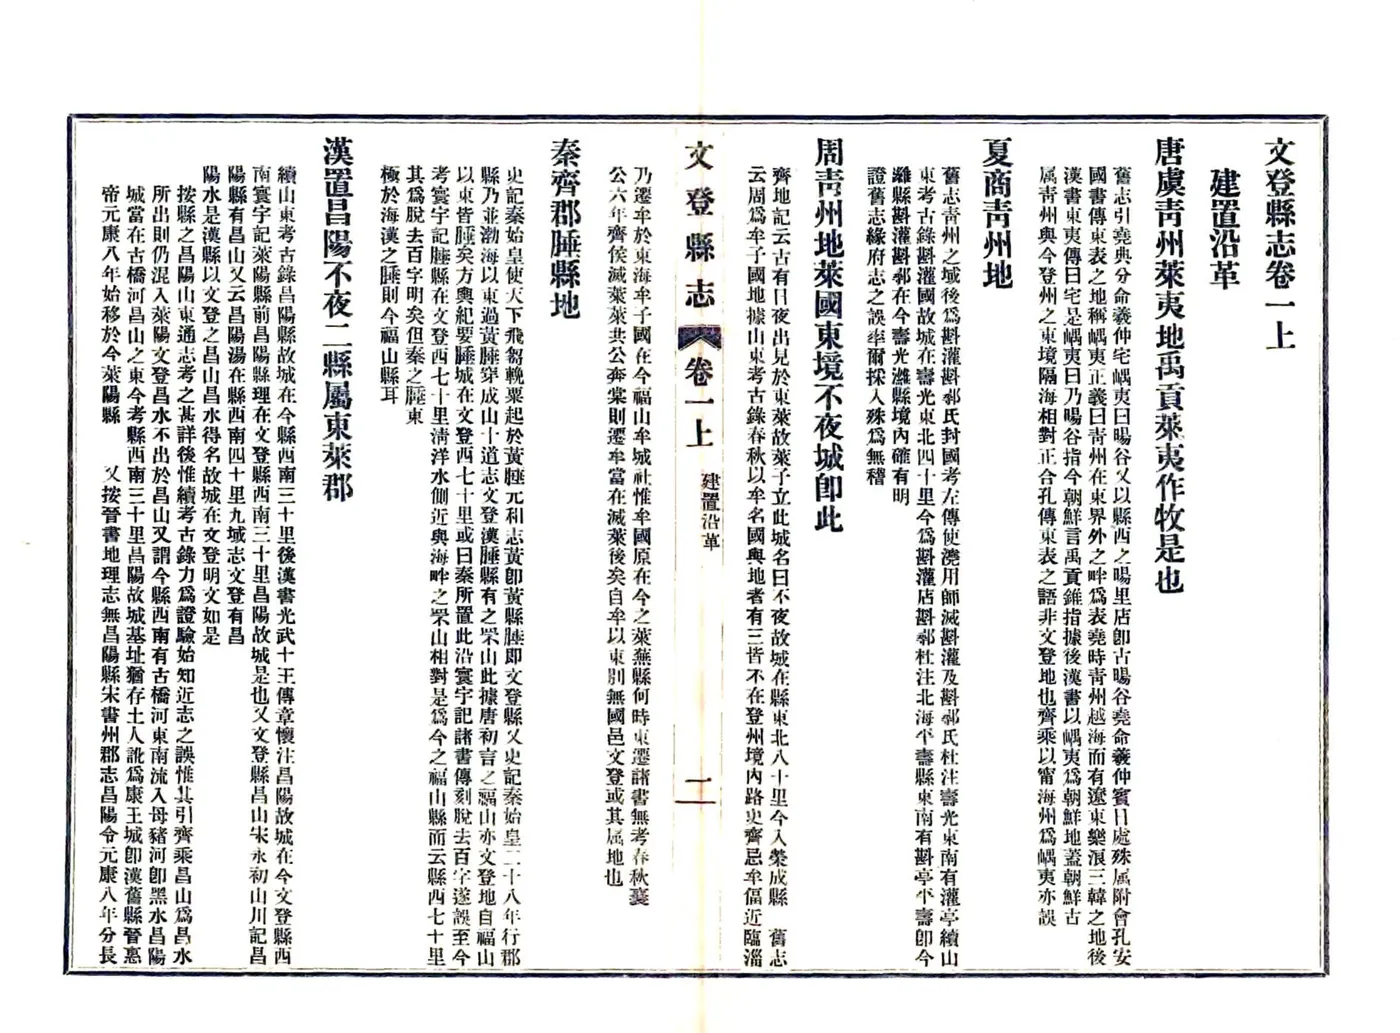 文登縣志卷一上
建置沿革
唐虞青州萊夷地禹貢萊夷作牧是也
舊志引堯典分命羲仲宅嵎夷曰暘谷又以縣西之暘里店卽古暘谷堯命羲仲賓日處殊属附會孔安
國書傳東表之地稱嵎夷正義曰青州在東界外之畔爲表堯時青州越海而有遼東樂浪三韓之地後
漢書東夷傳曰宅是嵎夷曰乃暘谷指今朝鮮言禹貢錐指據後漢書以嵎夷爲朝鮮地蓋朝鮮古
属青州與今登州之東境隔海相對正合孔傳東表之語非文登地也齊乘以甯海州爲嵎夷亦誤
夏商青州地
舊志青州之域後爲斟灌斟鄩氏封國考左傳使澆用師滅斟灌及斟鄩氏杜注壽光東南有灌亭續山
東考古錄斟灌國故城在壽光東北四十里今爲斟灌店斟鄩杜注北海平壽縣東南有斟亭平壽卽今
濰縣斟灌斟鄩在今壽光濰縣境內確有明
證舊志緣府志之誤率爾採入殊爲無稽
周青州地萊國東境不夜城卽此
齊地記云古有日夜出見於東萊故萊子立此城名曰不夜故城在縣東北八十里今入榮成縣 舊志
云周爲牟子國地據山東考古錄春秋以牟名國與地者有三皆不在登州境內路史齊忌牟偪近臨淄
文登縣志 卷一上 建置沿革 一
乃遷牟於東海牟子國在今福山牟城社惟牟國原在今之萊蕪縣何時東遷諸書無考春秋襄
公六年齊侯滅萊萊共公奔棠則遷牟當在滅萊後矣自牟以東別無國邑文登或其属地也
秦齊郡腄縣地
史記秦始皇使天下飛芻輓粟起於黃腄元和志黃卽黃縣腄即文登縣又史記秦始皇二十八年行郡
縣乃並渤海以東過黃腄穿成山十道志文登漢腄縣有之罘山此據唐初言之福山亦文登地自福山
以東皆腄矣方輿紀要腄城在文登西七十里或曰秦所置此沿寰宇記諸書傳刻脫去百字遂誤至今
考寰宇記腄縣在文登西七十里淸洋水側近與海畔之罘山相對是爲今之福山縣而云縣西七十里
其爲脫去百字明矣但秦之腄東
極於海漢之腄則今福山縣耳
漢置昌陽不夜二縣屬東萊郡
續山東考古錄昌陽縣故城在今縣西南三十里後漢書光武十王傳章懷注昌陽故城在今文登縣西
南寰宇記萊陽縣前昌陽縣理在文登縣西南三十里昌陽故城是也又文登縣昌山宋永初山川記昌
陽縣有昌山又云昌陽湯在縣西南四十里九域志文登有昌
陽水是漢縣以文登之昌山昌水得名故城在文登明文如是
按縣之昌陽山東通志考之甚詳後惟續考古錄力爲證驗始知近志之誤惟其引齊乘昌山爲昌水
所出則仍混入萊陽文登昌水不出於昌山又謂今縣西南有古橋河東南流入母豬河卽黑水昌陽
城當在古橋河昌山之東今考縣西南三十里昌陽故城基址猶存土人訛爲康王城卽漢舊縣晉惠
帝元康八年始移於今萊陽縣 又按晉書地理志無昌陽縣宋書州郡志昌陽令元康八年分長